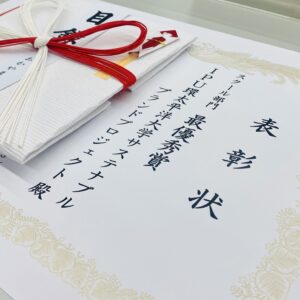 表彰状
スクール部門 最優秀賞
IPU環太平洋大学サステナブル
ブランドプロジェクト殿
目録